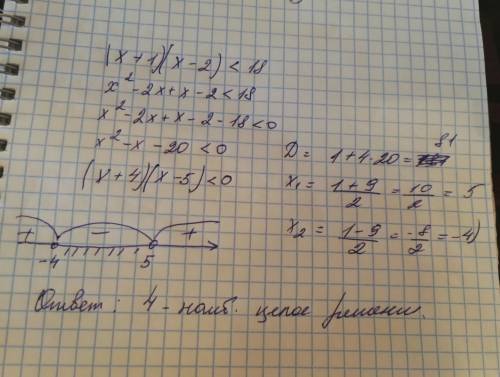 (x + 1)(x - 2) < 18
x² - 2x + x - 2 < 18
x² - 2x + x - 2 - 18 < 0
x² - x - 20 < 0
(x + 4)(x - 5) < 0
D = 1 + 4·20 = 81
x₁ = (1 + 9)/2 = 10/2 = 5
x₂ = (1 - 9)/2 = -8/2 = -4)
+ - +
-4 5
Ответ: 4 - наиб. целое решение.